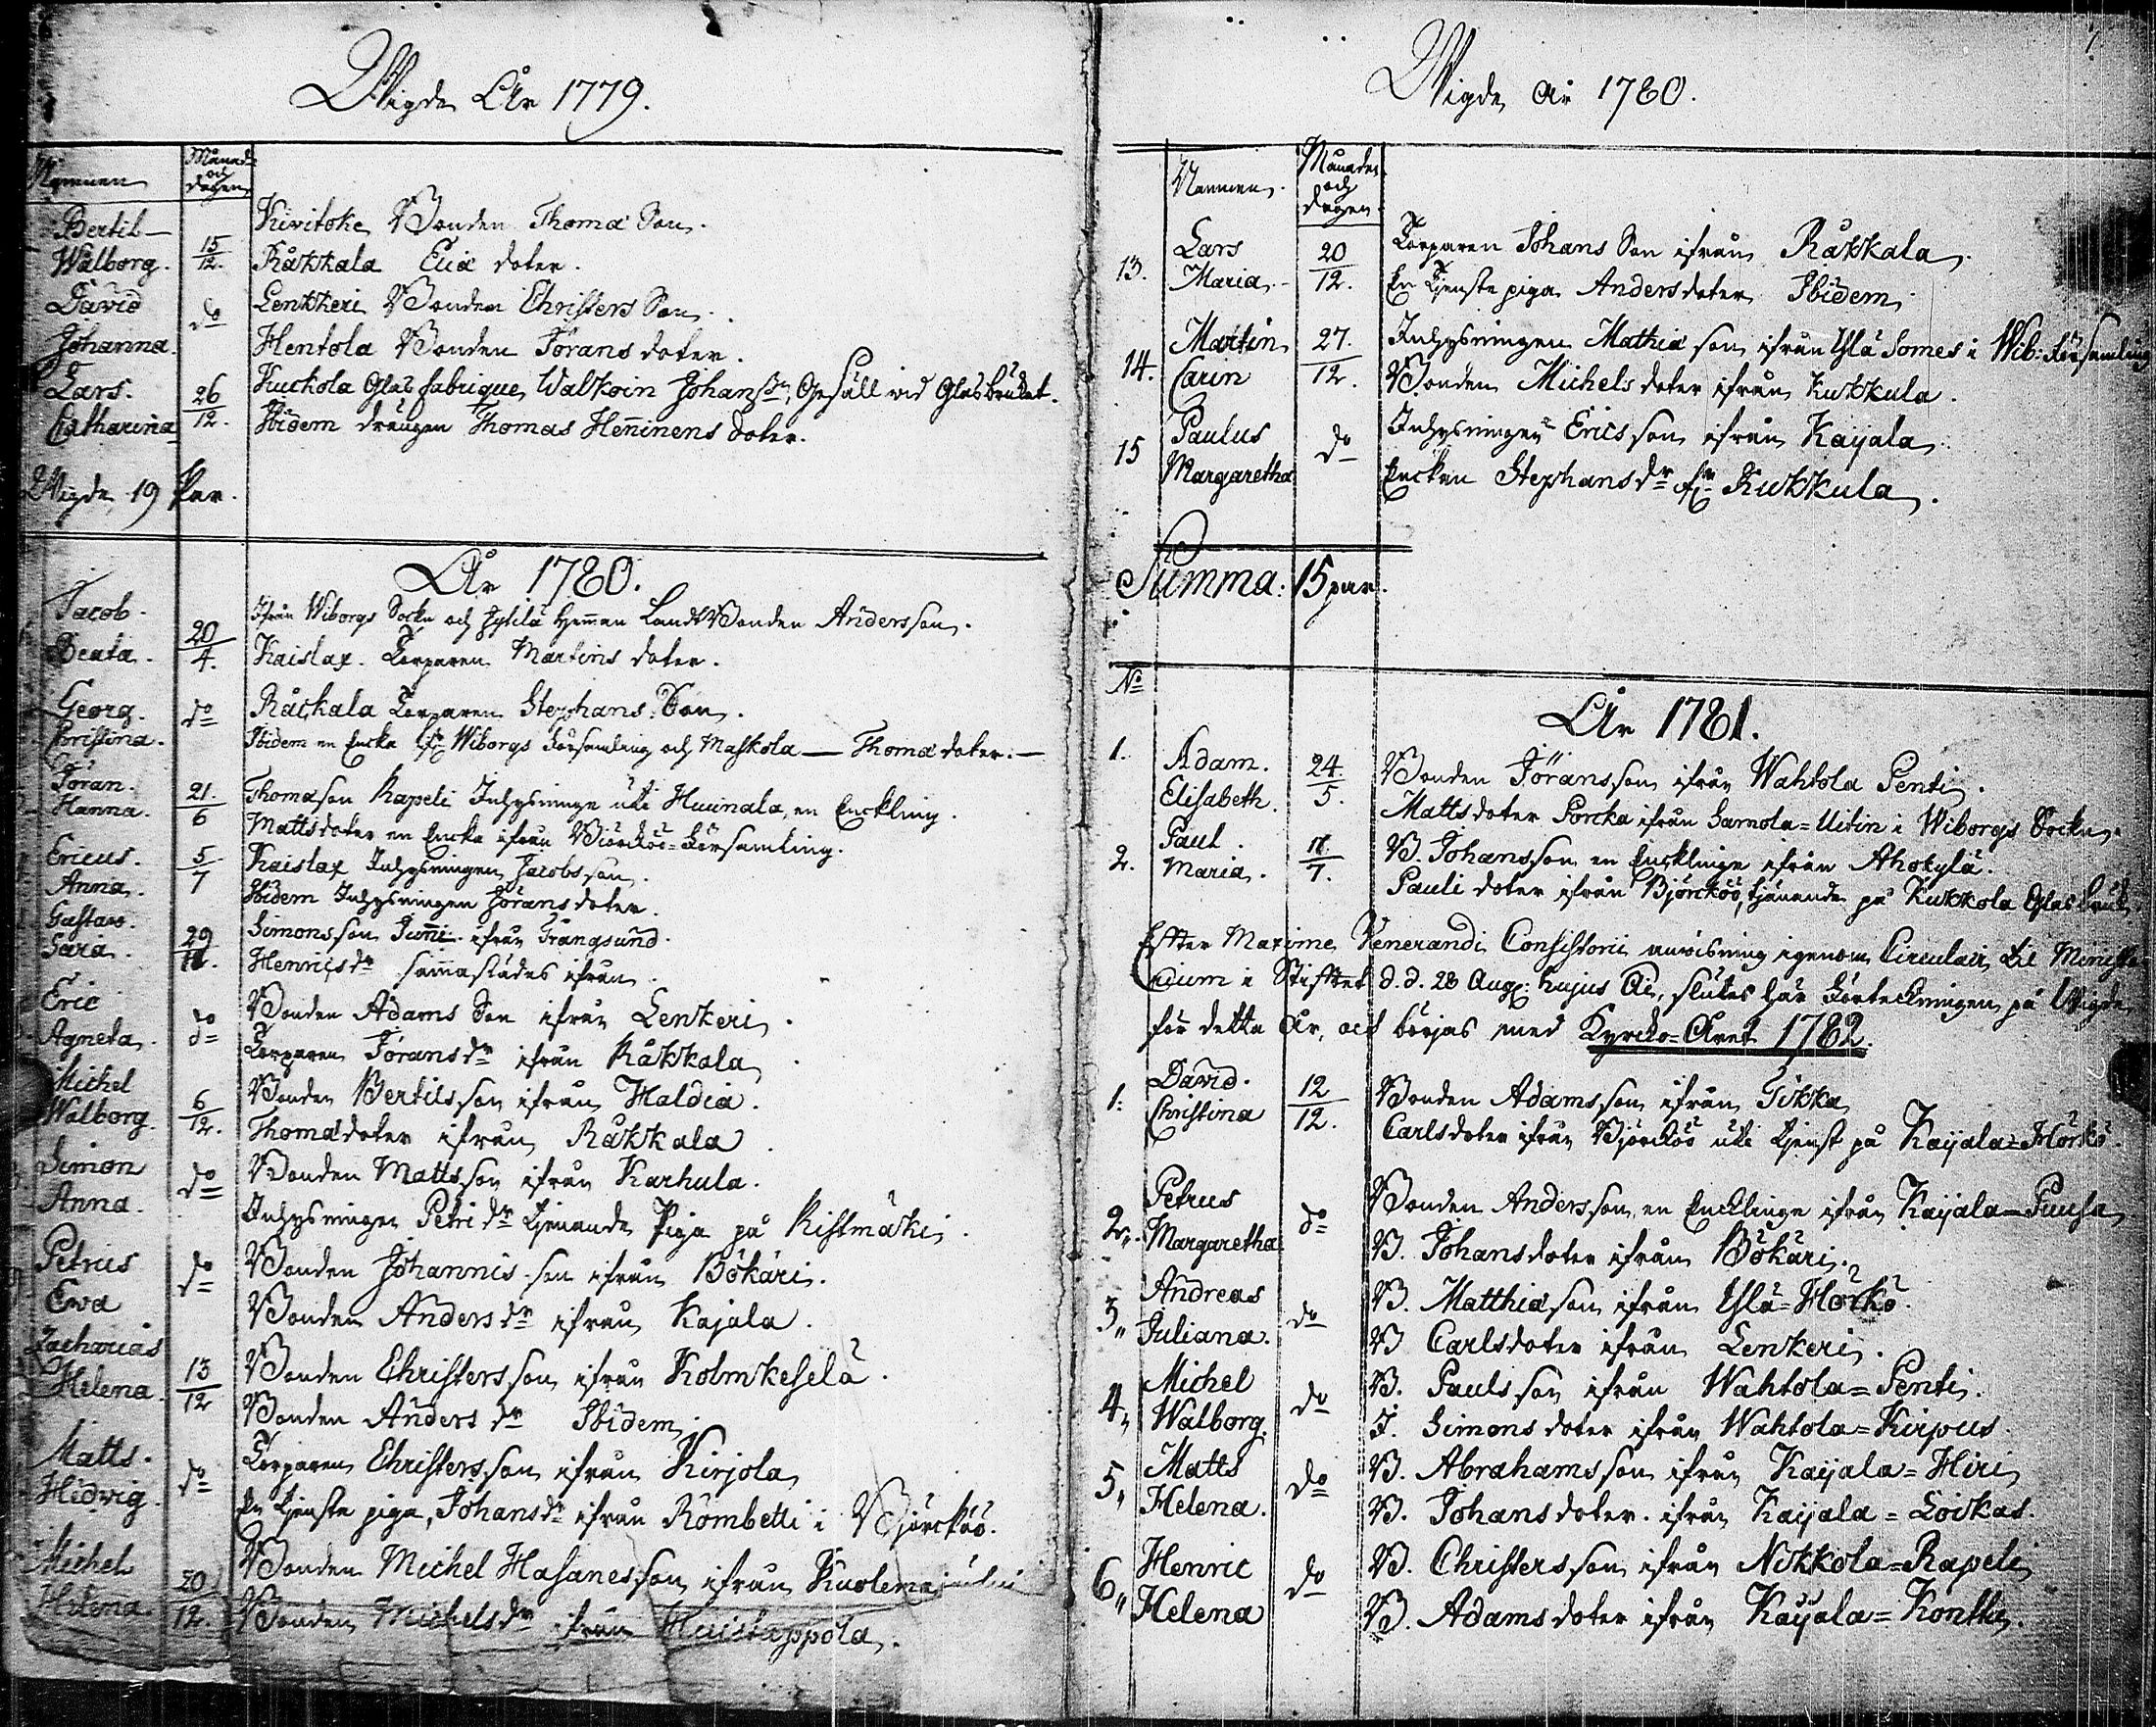 Wigde År 1779.
Namnen Månad och dagen
Bertil Kivitoke Bonden Thomæ Son.
Walborg. 15/12. Råkkala Eliæ doter.
David do Lenkkeri Bonden Christers Son.
Johanna. Hentola Bonden Jörans doter.
Lars. 26/12. Kuckola Glas fabrique, Walkoin Johans Sn, Gesäll vid Glasbruket.
Catharina Ibidem drängen Thomas Heñinens doter.
Wigde 19 Par.
År 1780.
Jacob. 20/4. Ifrån Wiborgs Sockn och Hemman Landt Bonden Andersson.
Beata. Kaislax. Torparen Martins doter.
Georg. do Råckala Torparen Stephans Son.
Christina. Ibidem en Enka ifr. Wiborgs Församling och Maskola — Thomæ doter. —
Jöran. 21./6 Thomæson Rapeli Inhysninge uti Huunala, en Enckling.
Hanna. Mattsdoter en Encka ifrån Biörcköö-Församling.
Ericus. 5/7 Kaislax Inhysningen Jacobsson.
Anna. Ibidem Inhysningen Jöransdoter.
Gustav. 29/11. Simonsson Juñi ifrån Trångsund.
Sara. Henricsdr sam̄astädes ifrån.
Eric do Bonden Adams Son ifrån Lenkeri.
Agneta. Torparen Jöransdr ifrån Råkkala
Michel 6/12. Bonden Bertilsson ifrån Haldia.
Walborg. Thomædoter ifrån Råkkala
Simon do Bonden Mattsson ifrån Karhula.
Anna. Inhysningen Petri dr tjenande Piga på Ristmäki.
Petrus do Bonden Johannis son ifrån Bökäri.
Ewa Bonden Anders dr ifrån Kajala.
Zacharias 13/12 Bonden Christersson ifrån Kolmkeselä.
Helena. Bonden Anders dr Ibidem
Matts. do Torparen Christersson ifrån Kirjola
Hedvig. En tjenste piga, Johansdr ifrån Römbetti i Björcköö.
Michel 20/12. Bonden Michel Hasanesson ifrån
Helena. Bonden Michelsdr ifrån
Wigde År 1780.
Namnen. Månaden och dagen
13. Lars 20/12. Torparen Johans Son ifrån Råkkala
Maria. En tjenste piga Andersdoter Ibidem
14. Martin 27./12. Inhysningen Mathiæ son ifrån Ylä Somes i Wib. Församling
Carin Bonden Michels doter ifrån Kukkula.
15 Paulus do Inhysningen Ericsson ifrån Kaijala
Margaretha Enckan Stephansdr ifr Kukkula.
Summa: 15 par.
No
År 1781.
1. Adam. 24./5. Bonden Jöransson ifrån Wahtola Penti.
Elisabeth. Mattsdoter Porcka ifrån Samola-Uitin i Wiborgs Sockn.
2. Paul. 11./7. B. Johansson en Encklinge ifrån Ahokylä.
Maria. Pauli doter ifrån Björcköö, tjänande på Kukkola Glasbruk
Efter Maxime Venerandi Consistorii anvisning igenom Circulair til Ministe-
rium i Stiftet d.d. 28 Aug: hujus Ai., slutes här Förteckningen på Wigde
för detta År, och börjas med Kyrcko-Året 1782.
1. David. 12/12. Bonden Adamsson ifrån Tikka
Christina Carlsdoter ifrån Björcköö uti tjenst på Kaijala-Hörkö.
2. Petrus do Bonden Andersson, en Encklinge ifrån Kaijala-Puusa
Margaretha B. Johansdoter ifrån Bökäri.
3. Andreas do B. Matthiæson ifrån Ylä-Hörkö.
Juliana. B Carlsdoter ifrån Lenkeri.
4. Michel do B. Paulsson ifrån Wahtola-Penti.
Walborg. J. Simonsdoter ifrån Wahtola-Kirpus.
5. Matts do B. Abrahamsson ifrån Kaijala-Hiri
Helena. B. Johansdoter. ifrån Kaijala-Loikas.
6. Henric do B. Christersson ifrån Nokkola-Rapeli
Helena B. Adamsdoter ifrån Kaijala-Kontta.